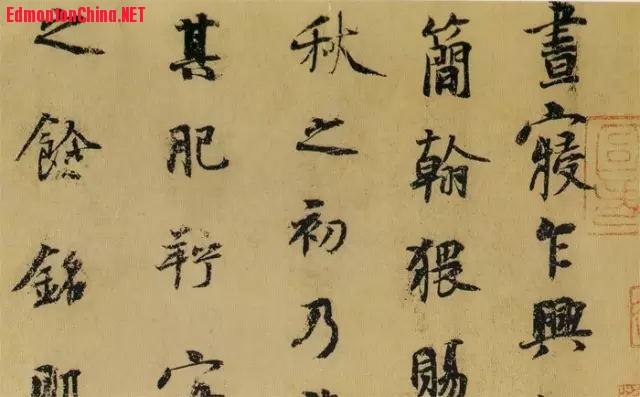 EdmontonChina.NET
晝寢乍興
簡翰猥賜
秋之初乃
其肥羜實
之餘銘肌